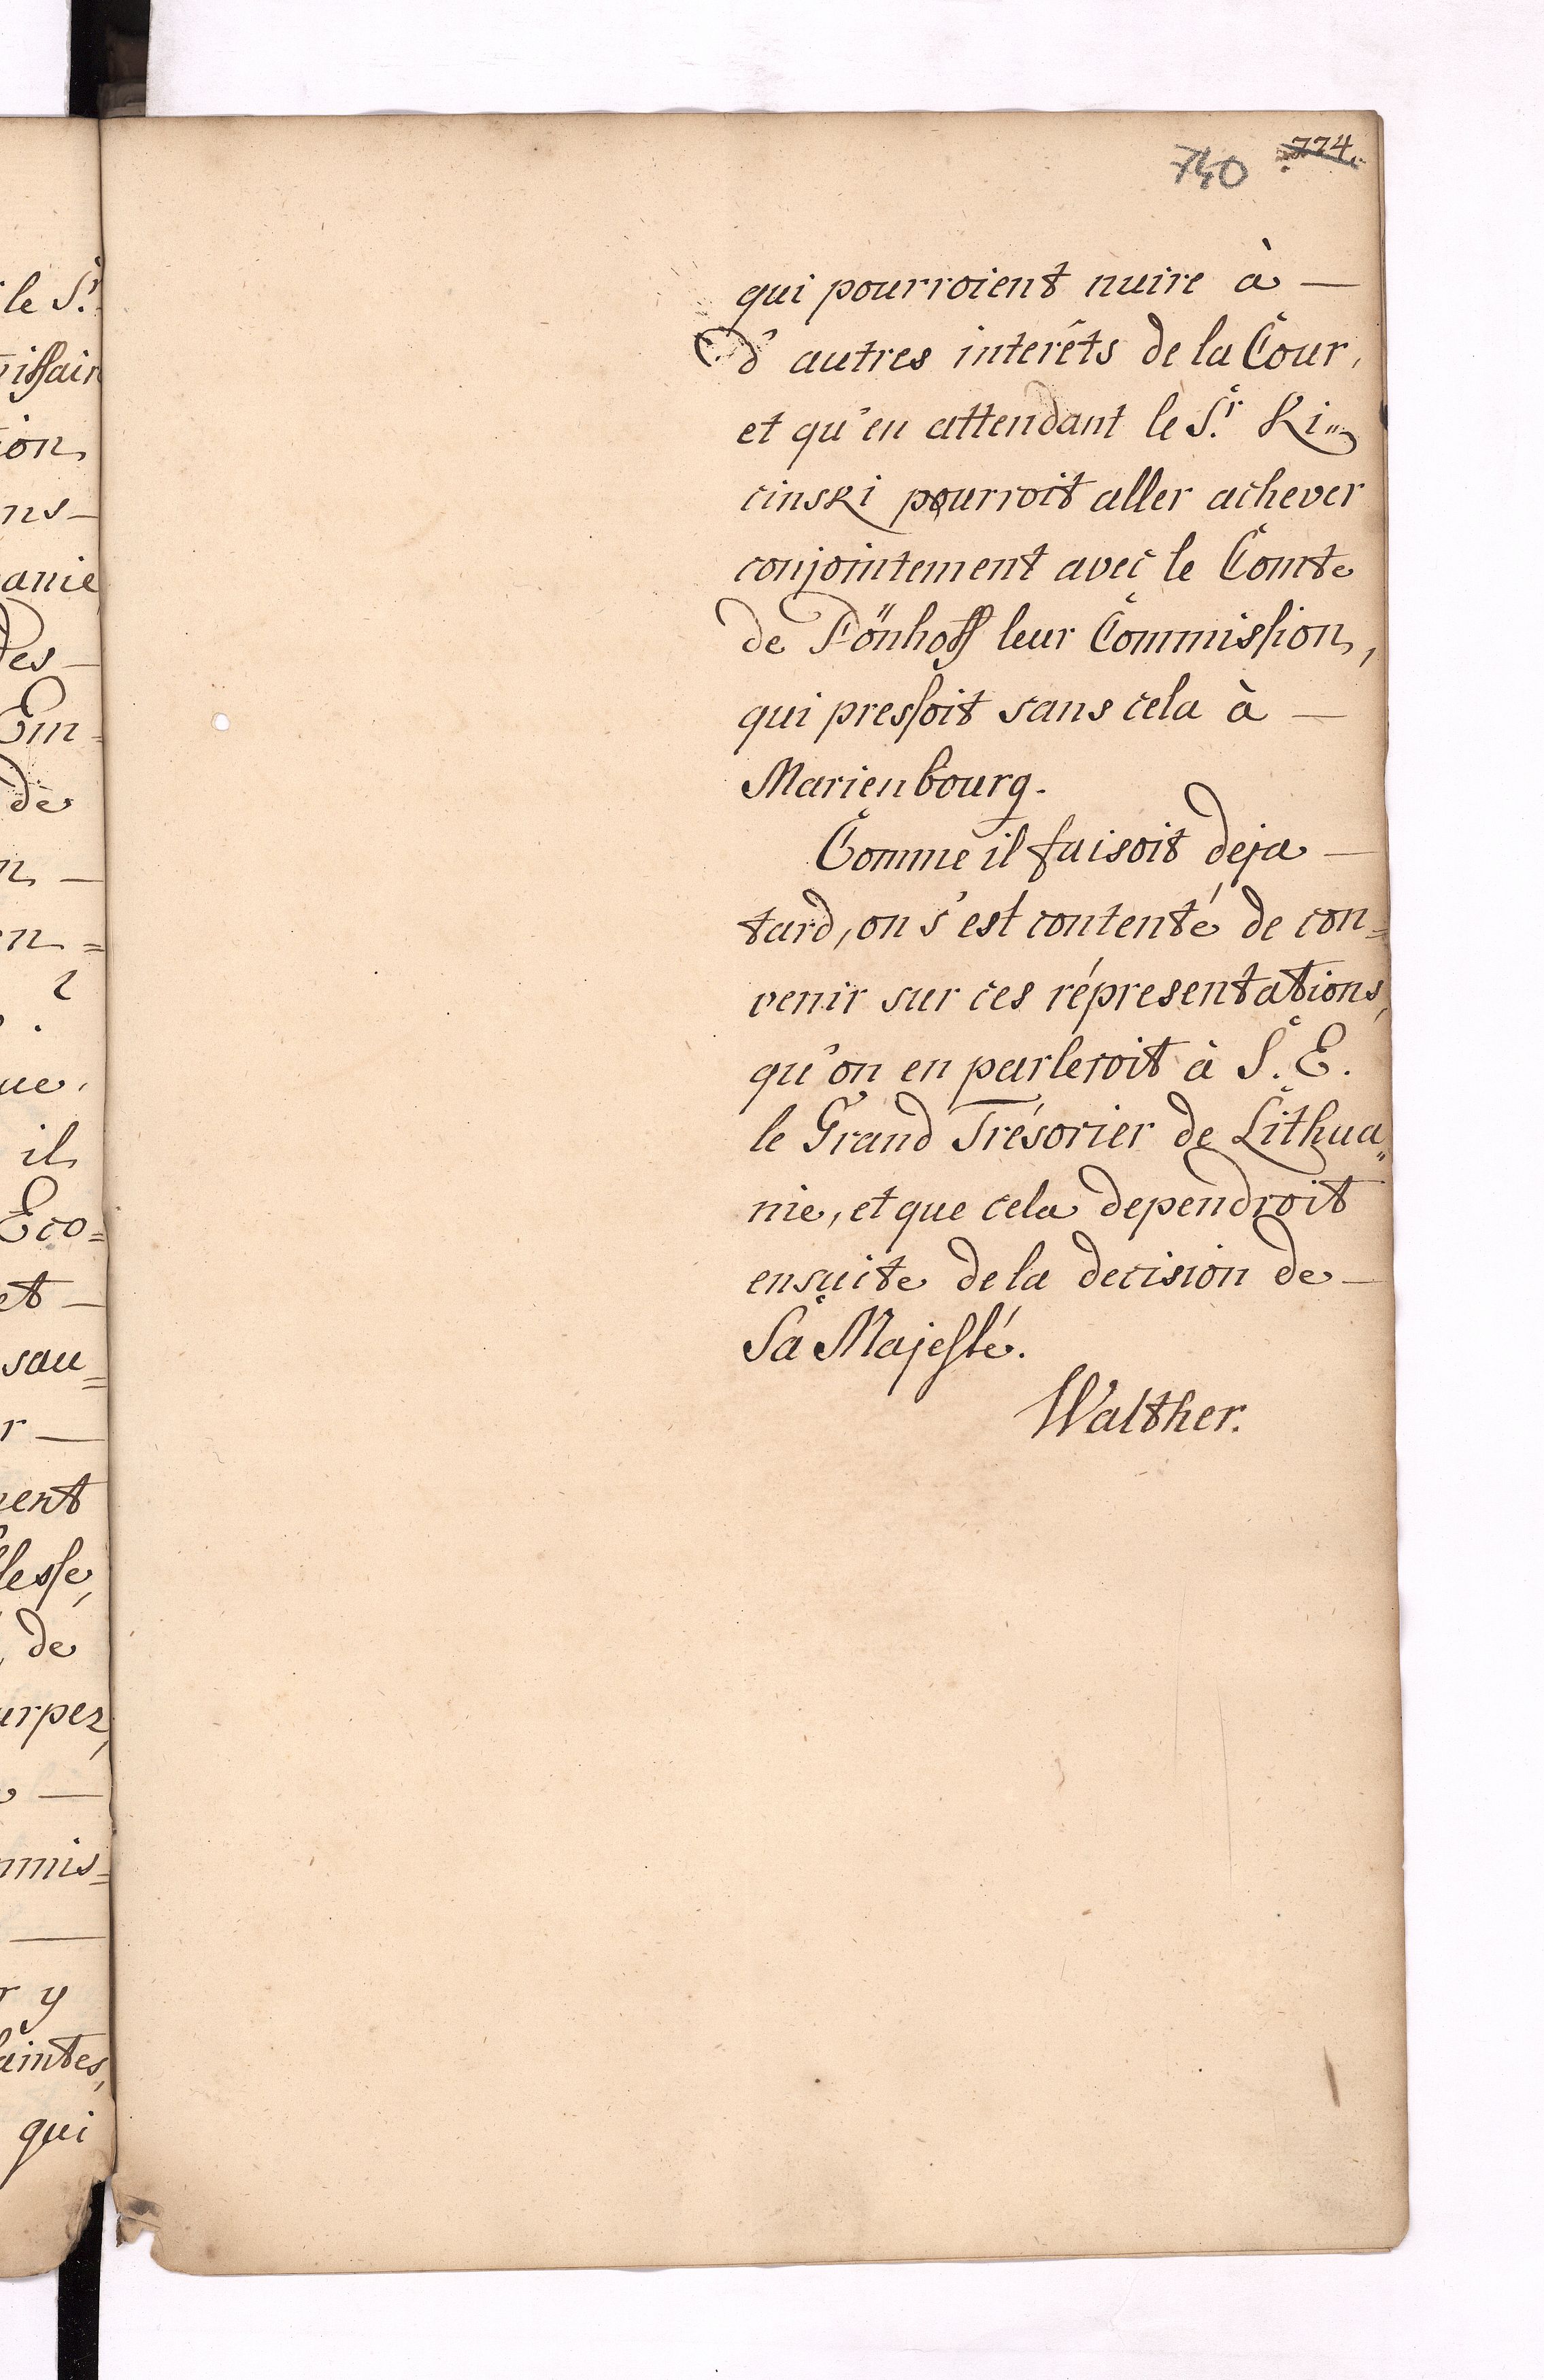 le Sr.
issair
ion
ns —
anie
des —
Em=
de
n —
en =
ue,
il
Eco=
et —
sau=
r —
ment
lesse,
, de
urpez,
—
mmis=
r y
laintes,
qui
740 774.
qui pourroient nuire à —
d'autres interêts de la Cour,
et qu'en attendant le Sr. Ki=
cinski pourroit aller achever
conjointement avec le Comte
de Dönhoff leur Commission,
qui pressoit sans cela à —
Marienbourg.
Comme il faisoit deja —
tard, on s'est contenté de con=
venir sur ces répresentations,
qu'on en parleroit à S. E.
le Grand Trésorier de Lithua=
nie, et que cela dependroit
ensuite de la decision de —
Sa Majesté.
Walther.